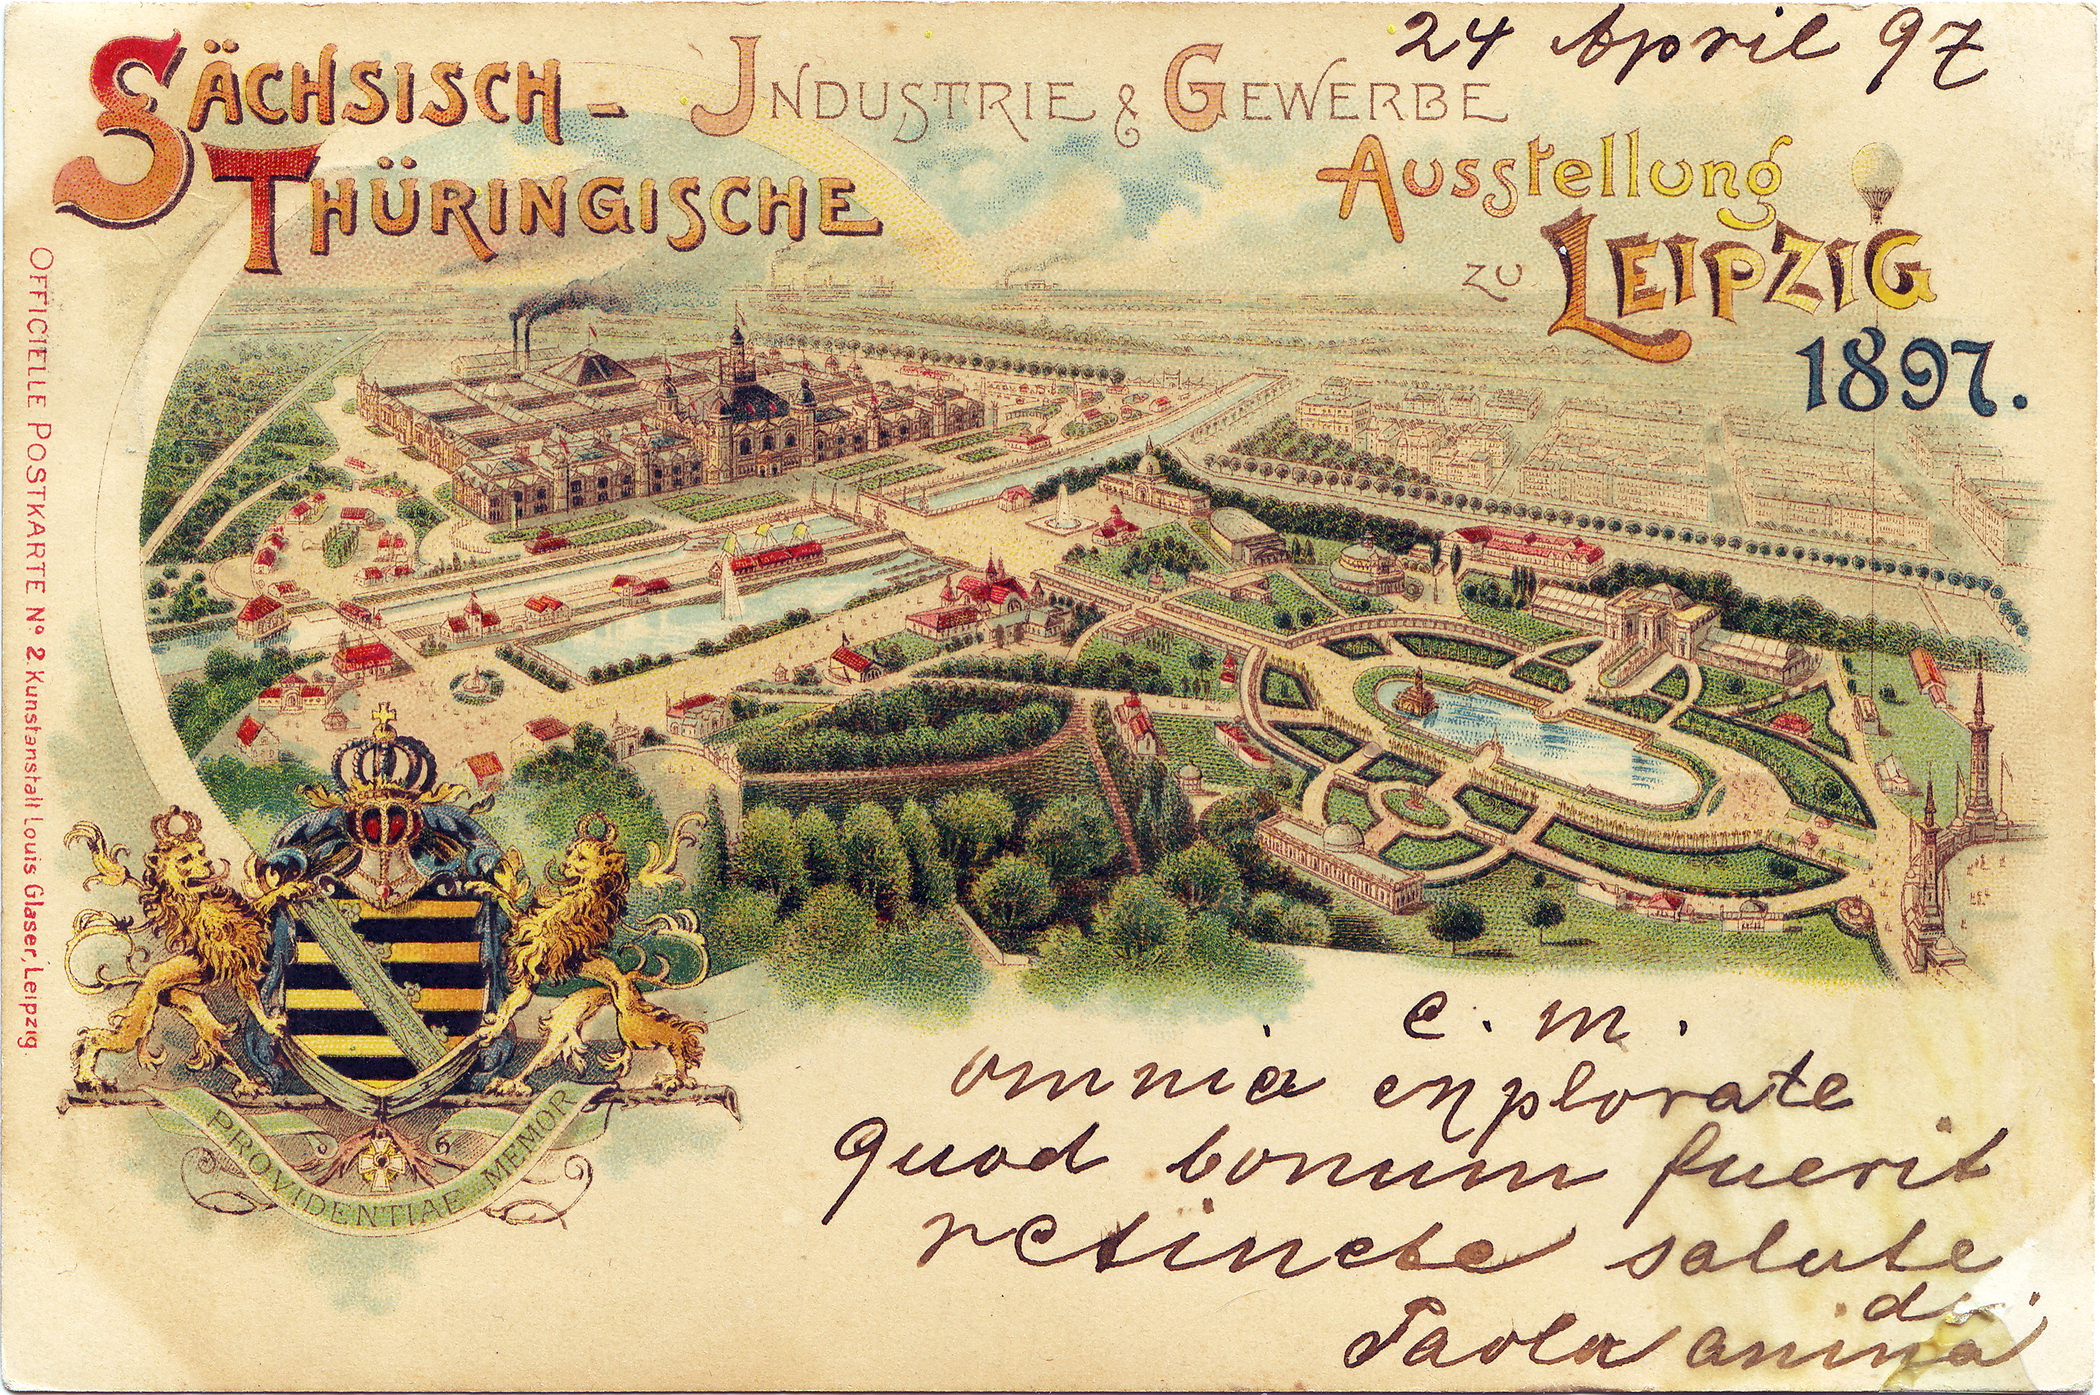 24 April 97
SÄCHSISCH-
THÜRINGISCHE
INDUSTRIE & GEWERBE
Ausstellung
ZU LEIPZIG
1897.
OFFICIELLE POSTKARTE No. 2. Kunstanstalt Louis Glaser, Leipzig.
PROVIDENTIAE MEMOR
c. m.
omnia explorate
quod bonum fuerit
retinete salute
Paola anima